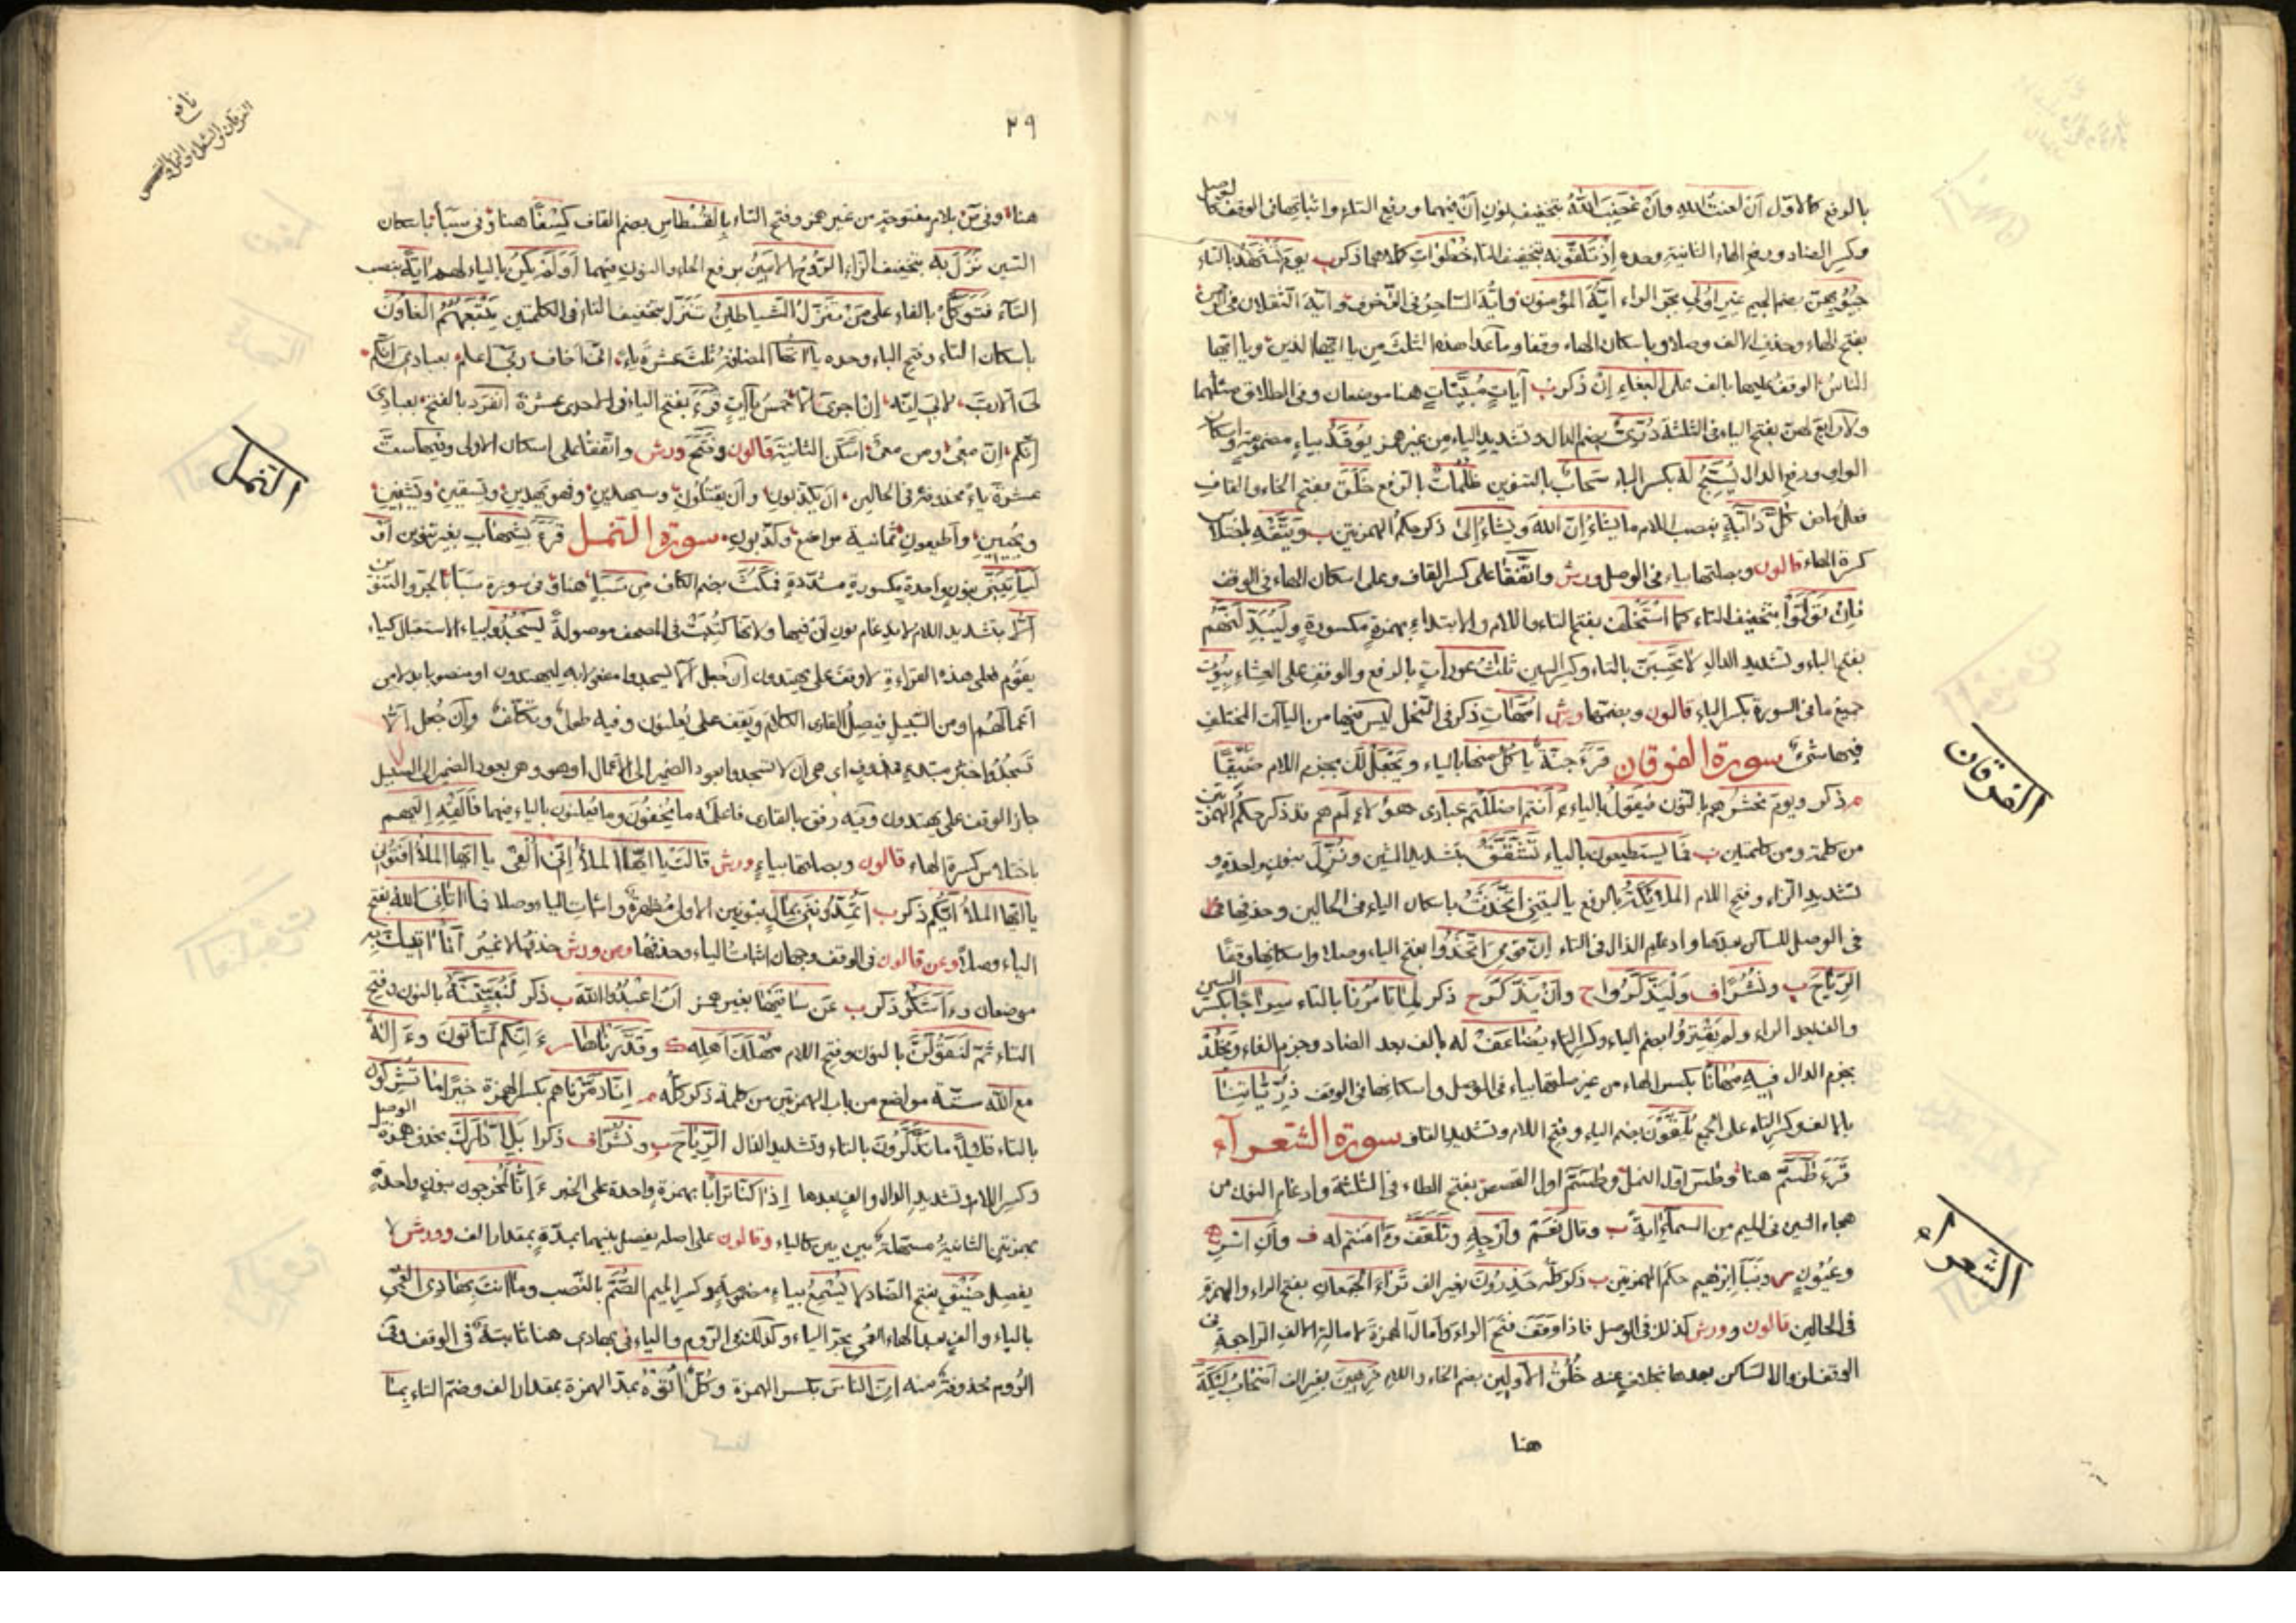 بالرفع كالاول أن لعنت الله وأن غضب الله بتخفيف نون أن فيهما ورفع التاء واثباتها فى الوقف كالوصل
وكسر الضاد ورفع الهاء الثانية وحده إذ تلقونه بتخفيف التاء خطوات كلاهما ذكر ب يوم تشهد بالتاء
جيوبهن بضم الجيم غير أولى بجر الراء ايه المؤمنون وايه الساحر فى الزخرف وايه الثقلان فى الرحمن
بفتح الهاء وحذف الالف وصلا وباسكان الهاء وقفا وما عدا هذه الثلث من يا ايها الذين ويا ايها
الناس الوقف عليها بالف على البغاء إن ذكر ب آيات مبينات هنا موضعان وفى الطلاق مثلهما
بفتح الياء فى الثلثة درى بضم الدال وتشديد الياء من غير همز يوقد بياء مضمومة واسكان
الواو ورفع الدال يسبح له بكسر الباء سحاب بالتنوين ظلمات بالرفع خلق بفتح الخاء والقاف
فعل ماض كل دابة بنصب اللام ما يشاء إن الله ويشاء إلى ذكر حكم الهمزتين ب ويتقه باختلاس
كسرة الهاء قالون وبصلتها بياء فى الوصل ورش واتفقا على كسر القاف وعلى اسكان الهاء فى الوقف
فإن تولوا بتخفيف التاء كما استخلف بفتح التاء واللام والابتداء بهمزة مكسورة وليبدلنهم
بفتح الباء وتشديد الدال لا تحسبن بالتاء وكسر السين ثلث عورات بالرفع والوقف على العشاء بيوت
جميع ما فى السورة بكسر الباء قالون وبضمها ورش امهات ذكر فى النحل ليس فيها من الياآت المختلف
فيها شئ سورة الفرقان قرء جنة يأكل منها بالياء ويجعل لك بجزم اللام ضيقا
ذكر ويوم نحشرهم بالنون فيقول بالياء ءأنتم اضللتم عبادى هؤلاء ام هم قد ذكر حكم الهمزتين
من كلمة ومن كلمتين ب فما يستطيعون بالياء تشقق بتشديد الشين ونزل بنون واحدة و
تشديد الزاء وفتح اللام الملائكة بالرفع يا ليتنى اتخذت باسكان الياء فى الحالين وحذفها
فى الوصل للساكن بعدها وادغام الذال فى التاء إن قومى اتخذوا بفتح الياء وصلا واسكانها وقفا
الرياح ب ونشرا ف وليذكروا ح وأن يذكر ح ذكر لما تأمرنا بالتاء سراجا بكسر السين
والف بعد الراء ولم يقتروا بضم الياء وكسر التاء يضاعف له بالف بعد الضاد وجزم الفاء ويخلد
بجزم الدال فيه مهانا بكسر الهاء من غير صلتها بياء فى الوصل واسكانها فى الوقف ذرياتنا
بالالف وكسر التاء على الجمع يلقون بضم الياء وفتح اللام وتشديد القاف سورة الشعرآء
قرء طسم هنا وطس اول النمل وطسم اول القصص بفتح الطاء فى الثلثة وادغام النون من
هجاء السين فى الميم من السماء آية ب وقال نعم وأرجه وتلقف وءامنتم له ف وأن اسر
وعيون ونبأ ابرهيم حكم الهمزتين ب ذكر كله حذرون بغير الف تراء الجمعان بفتح الراء والهمزة
فى الحالين قالون وورش كذلك فى الوصل فاذا وقف فتح الراء وأمال الهمزة لامالة الالف الراجعة فى
الوقف الساكن بعدها بخلاف عنه خلق الاولين بضم الخاء واللام فرهين بغير الف اصحاب ليكة
هنا
الفرقان
الشعراء
٢٩
نافع
الفرقان والشعراء والنمل والقصص
هنا وفى ص بلام مفتوحة من غير همز وفتح التاء بالقسطاس بضم القاف كسفا هنا وفى سبأ باسكان
السين نزل به بتخفيف الزاء الروح الامين برفع الحاء والنون فيهما أولم يكن بالياء لهم آية بنصب
التاء فتوكل بالفاء على من تنزل الشياطين تنزل بتخفيف التاء فى الكلمتين يتبعهم الغاون
باسكان التاء وفتح الباء وحده ياآتها المضافة ثلث عشرة ياء انى اخاف ربى اعلم بعبادى انكم
لى الارب لابى انه إن اجرى الا خمس ياآت قرء بفتح الياء فى الاحدى عشرة انفرد بالفتح بعبادى
انكم إن معى ومن معى اسكن الثانية قالون وفتح ورش واتفقا على اسكان الاولى وفيها ست
عشرة ياء محذوفة فى الحالين أن يكذبون وأن يقتلون وسيهدين وفهو يهدين ويسقين ويشفين
ويحيين وأطيعون ثمانية مواضع وكذبون سورة النمل قرء بشهاب بغير تنوين أو
ليأتينى بنون واحدة مكسورة مشددة فمكث بضم الكاف من سبأ هنا وفى سورة سبأ بالجر والتنوين
ألا بتشديد اللام لادغام نون أن فيها ولانها كتبت فى المصحف موصولة يسجدوا بياء الاستقبال كياء
يقوم فعلى هذه القراءة لا وقف على يهتدون إن جعل ألا يسجدوا مفعولا به ليهتدون او منصوبا بدلا من
اعمالهم او من السبيل فيصل القارى الكلام ويقف على يعلنون وفيه طول وتكلف وإن جعل ألا
يسجدوا خبر مبتدء محذوف اى هى أن لا يسجدوا بعود الضمير الى الاعمال او هو وهى بعود الضمير الى السبيل
جاز الوقف على يهتدون وفيه رفق بالقارى فاعلمه ما يخفون وما يعلنون بالياء فيهما فألقه إليهم
باختلاس كسرة الهاء قالون وبصلتها بياء ورش قالت يا ايها الملأ إنى ألقى يا ايها الملأ افتونى
يا ايها الملأ أيكم ذكر ب أتمدوننى بمال بنونين الاولى مظهرة واثبات الياء وصلا فما اتانى الله بفتح
الياء وصلا وعن قالون فى الوقف وجهان اثبات الياء وحذفها وعن ورش حذفها لا غير أنا اتيك به
موضعان وءأشكر ذكر ب عن ساقيها بغير همز أن اعبدوا الله ب ذكر لنبيتنه بالنون وفتح
التاء ثم لنقولن بالنون وفتح اللام مهلك أهله وقدرناها ءإنكم لتأتون وءإله
مع الله ستة مواضع من باب الهمزتين من كلمة ذكر كله إنا دمرناهم بكسر الهمزة خير اما تشركون
بالتاء قليلا ما تذكرون بالتاء وتشديد الذال الرياح ب ونشرا ف ذكرا بل ادارك بحذف همزة الوصل
وكسر اللام وتشديد الدال والف بعدها إذا كنا ترابا بهمزة واحدة على الخبر ءإنا لمخرجون بنون واحدة
بهمزتين الثانية مسهلة بين بين كالياء وقالون على اصله يفصل بينهما بمدة بمقدار الف وورش لا
يفصل ضيق بفتح الضاد لا يسمع بياء مضمومة وكسر الميم الصم بالنصب وما انت بهادى العمى
بالياء والف بعد الهاء العمى بجر الياء وكذلك فى الروم والياء فى بهادى هنا ثابتة فى الوقف وفى
الروم محذوفة منه ان الناس بكسر الهمزة وكل آتوه بمد الهمزة بمقدار الف وضم التاء بما
النمل